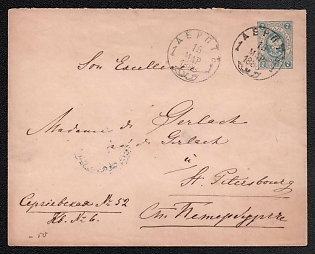 ДЕРПТ
15
МАР
ДЕРПТ
15
МАР
Son Excellence
Madame de Gerlach
née de Gerlach
à
St. Petersbourg
Сергіевская № 52
Кв. № 6.
Ст. Петербургъ